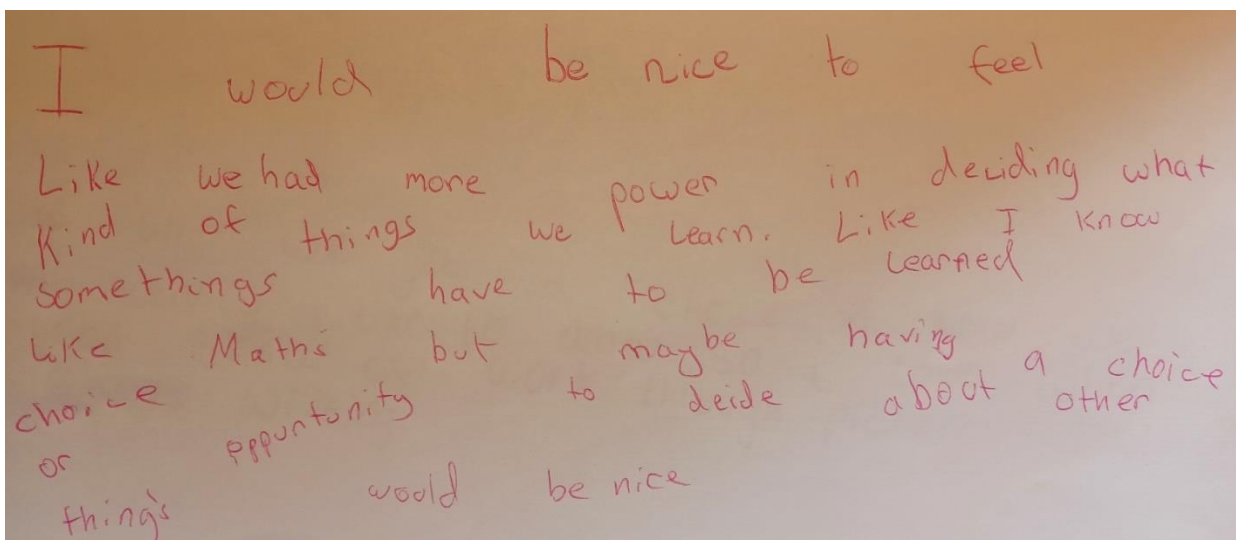 I would be nice to feel
Like we had more power in deciding what
Kind of things we Learn. Like I know
somethings have to be Learned
Like Maths but maybe having a choice
choice or eppuntunity to deide about other
things would be nice